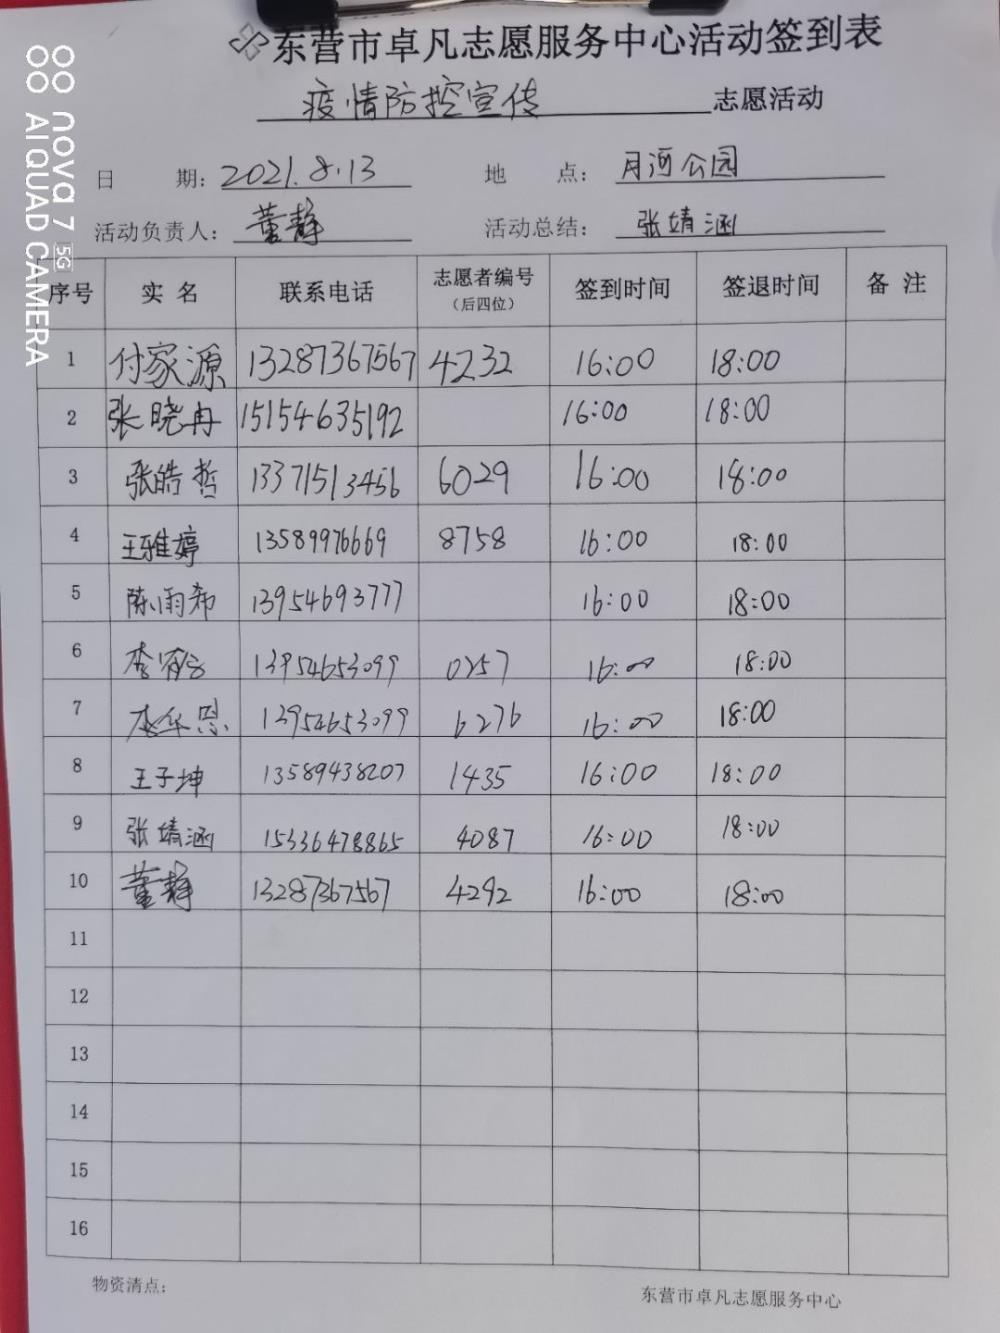 东营市卓凡志愿服务中心活动签到表
疫情防控宣传 志愿活动
日 期: 2021.8.13 地 点: 月河公园
活动负责人: 董静 活动总结: 张靖涵
序号 实 名 联系电话 志愿者编号（后四位） 签到时间 签退时间 备 注
1 付家源 13287367567 4232 16:00 18:00
2 张晓冉 15154635192 16:00 18:00
3 张皓哲 13371513456 6029 16:00 18:00
4 王雅婷 13589976669 8758 16:00 18:00
5 陈雨希 13954693777 16:00 18:00
6 李 13954653099 0257 16:00 18:00
7 恩 13954653099 6276 16:00 18:00
8 王子坤 13589438207 1435 16:00 18:00
9 张靖涵 15336478865 4087 16:00 18:00
10 董静 13287367567 4292 16:00 18:00
11
12
13
14
15
16
物资清点:
东营市卓凡志愿服务中心
nova 7 5G
AI QUAD CAMERA